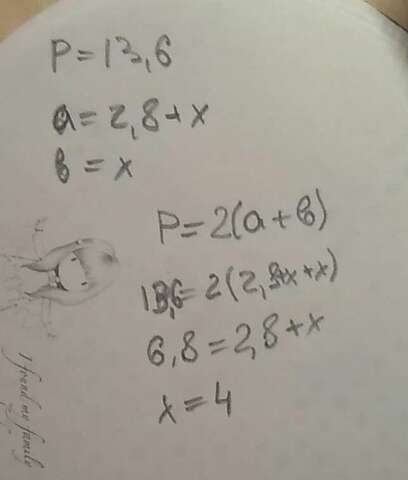 P=13,6
a=2,8+x
b=x
P=2(a+b)
13,6=2(2,8+x+x)
6,8=2,8+x
x=4
I found me famile